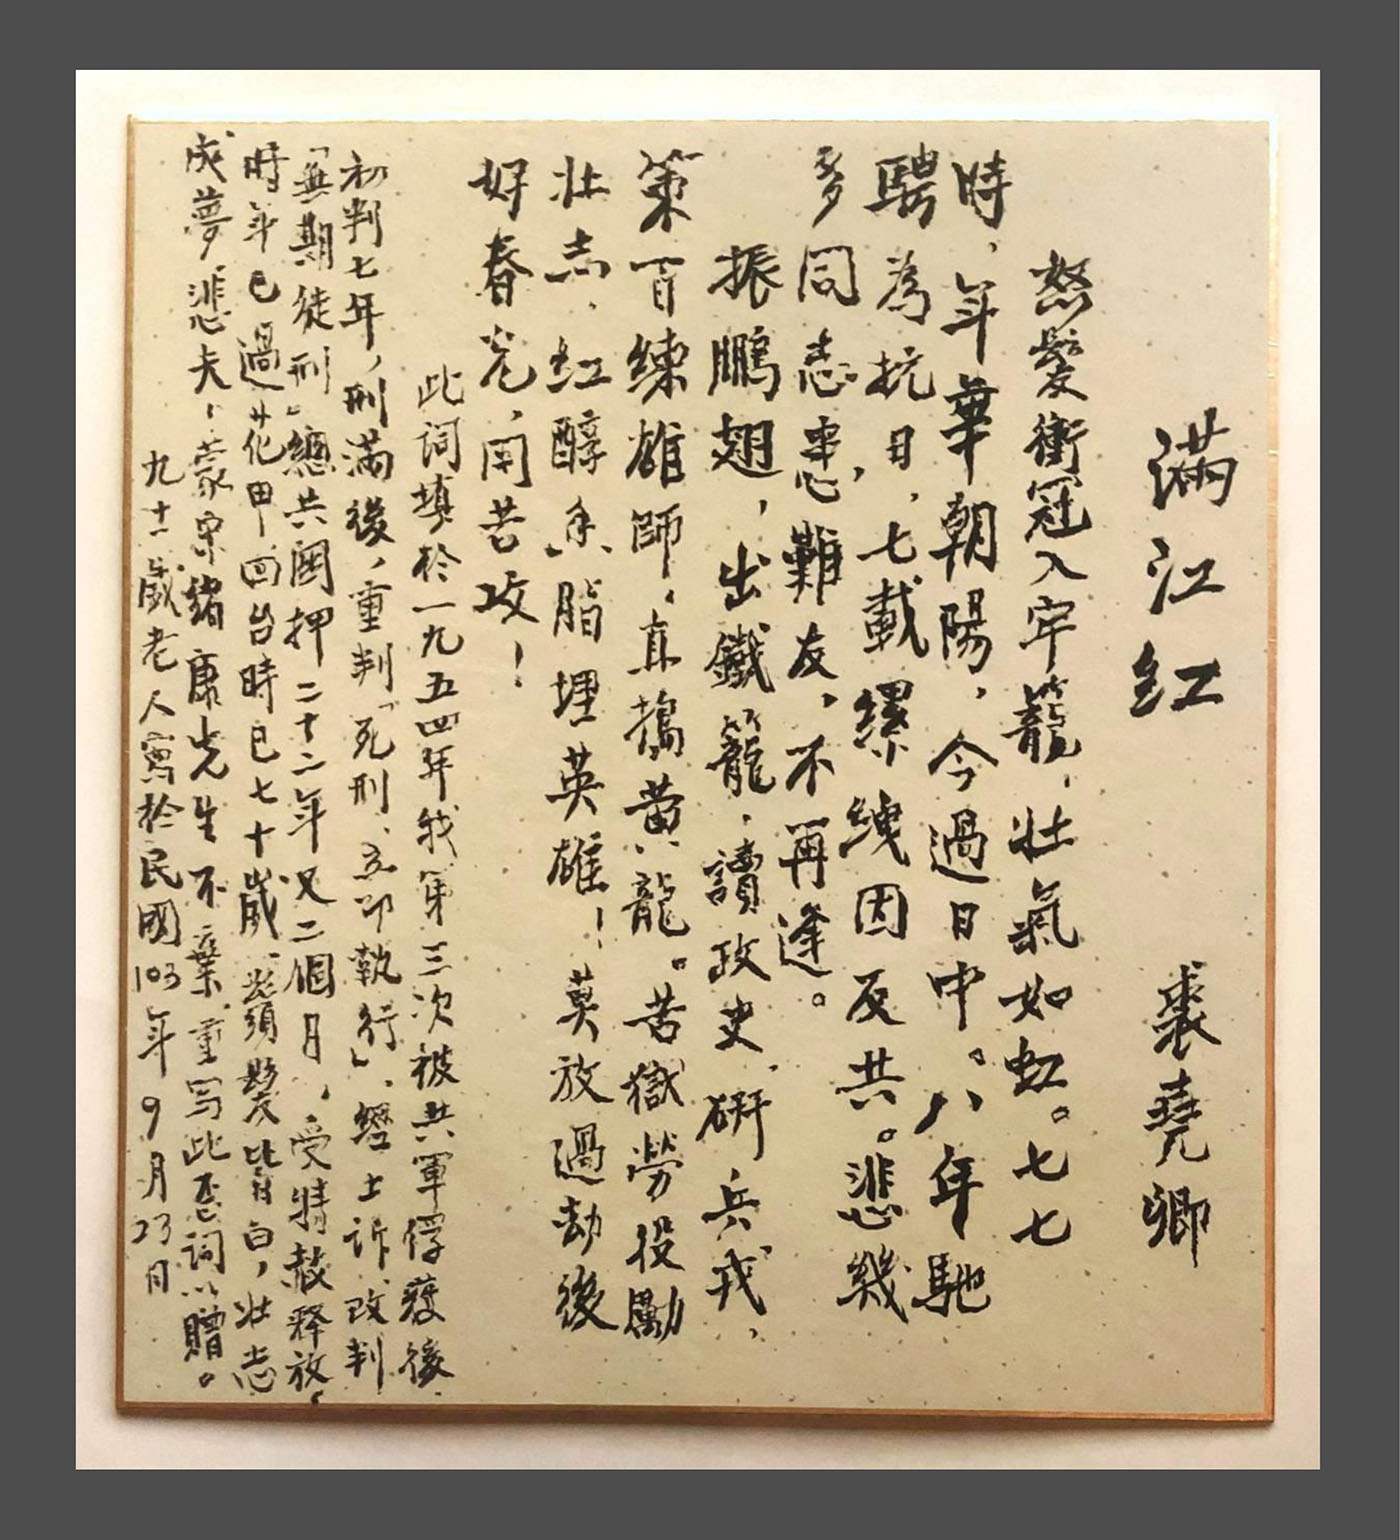 滿江红　裘堯卿
怒髮衝冠入牢籠，壯氣如虹。七七
時，年華朝陽，今過日中。八年馳
騁為抗日，七載縲絏因反共。悲幾
多同志患難友，不再逢。
振鵬翅，出鐵籠，讀政史，研兵戎，
策百練雄師，直搗黄龍。苦獄勞役勵
壯志，红醇香脂埋英雄！莫放過劫後
好春光，用苦攻！
此詞填於一九五四年我第三次被共軍俘獲後
初判七年，刑滿後，重判「死刑、立即執行」，經上訴改判
「無期徒刑」總共関押二十二年又二個月，受特赦释放。
時年已過花甲，回台時已七十歲，鬚髮皆白，壯志
成夢悲夫！蒙宋緒康先生不棄，重写此歪詞以贈。
九十一歲老人寫於民國103年9月23日